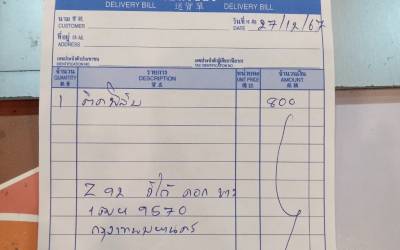 DELIVERY BILL 送貨單 DELIVERY BILL
นาม 寶號 CUSTOMER
วันที่ 27/12/67
ที่อยู่ ADDRESS
เลขประจำตัวประชาชน IDENTIFICATION NO. เลขประจำตัวผู้เสียภาษีอากร TAX IDENTIFICATION NO.
จำนวน รายการ หน่วยละ จำนวนเงิน
QUANTITY DESCRIPTION UNIT PRICE AMOUNT
數量 貨名 價目 銀額
1 ติดฟิล์ม 800
Z 92 ดอก ขาว
1 ฒษ 9570
กรุงเทพมหานคร